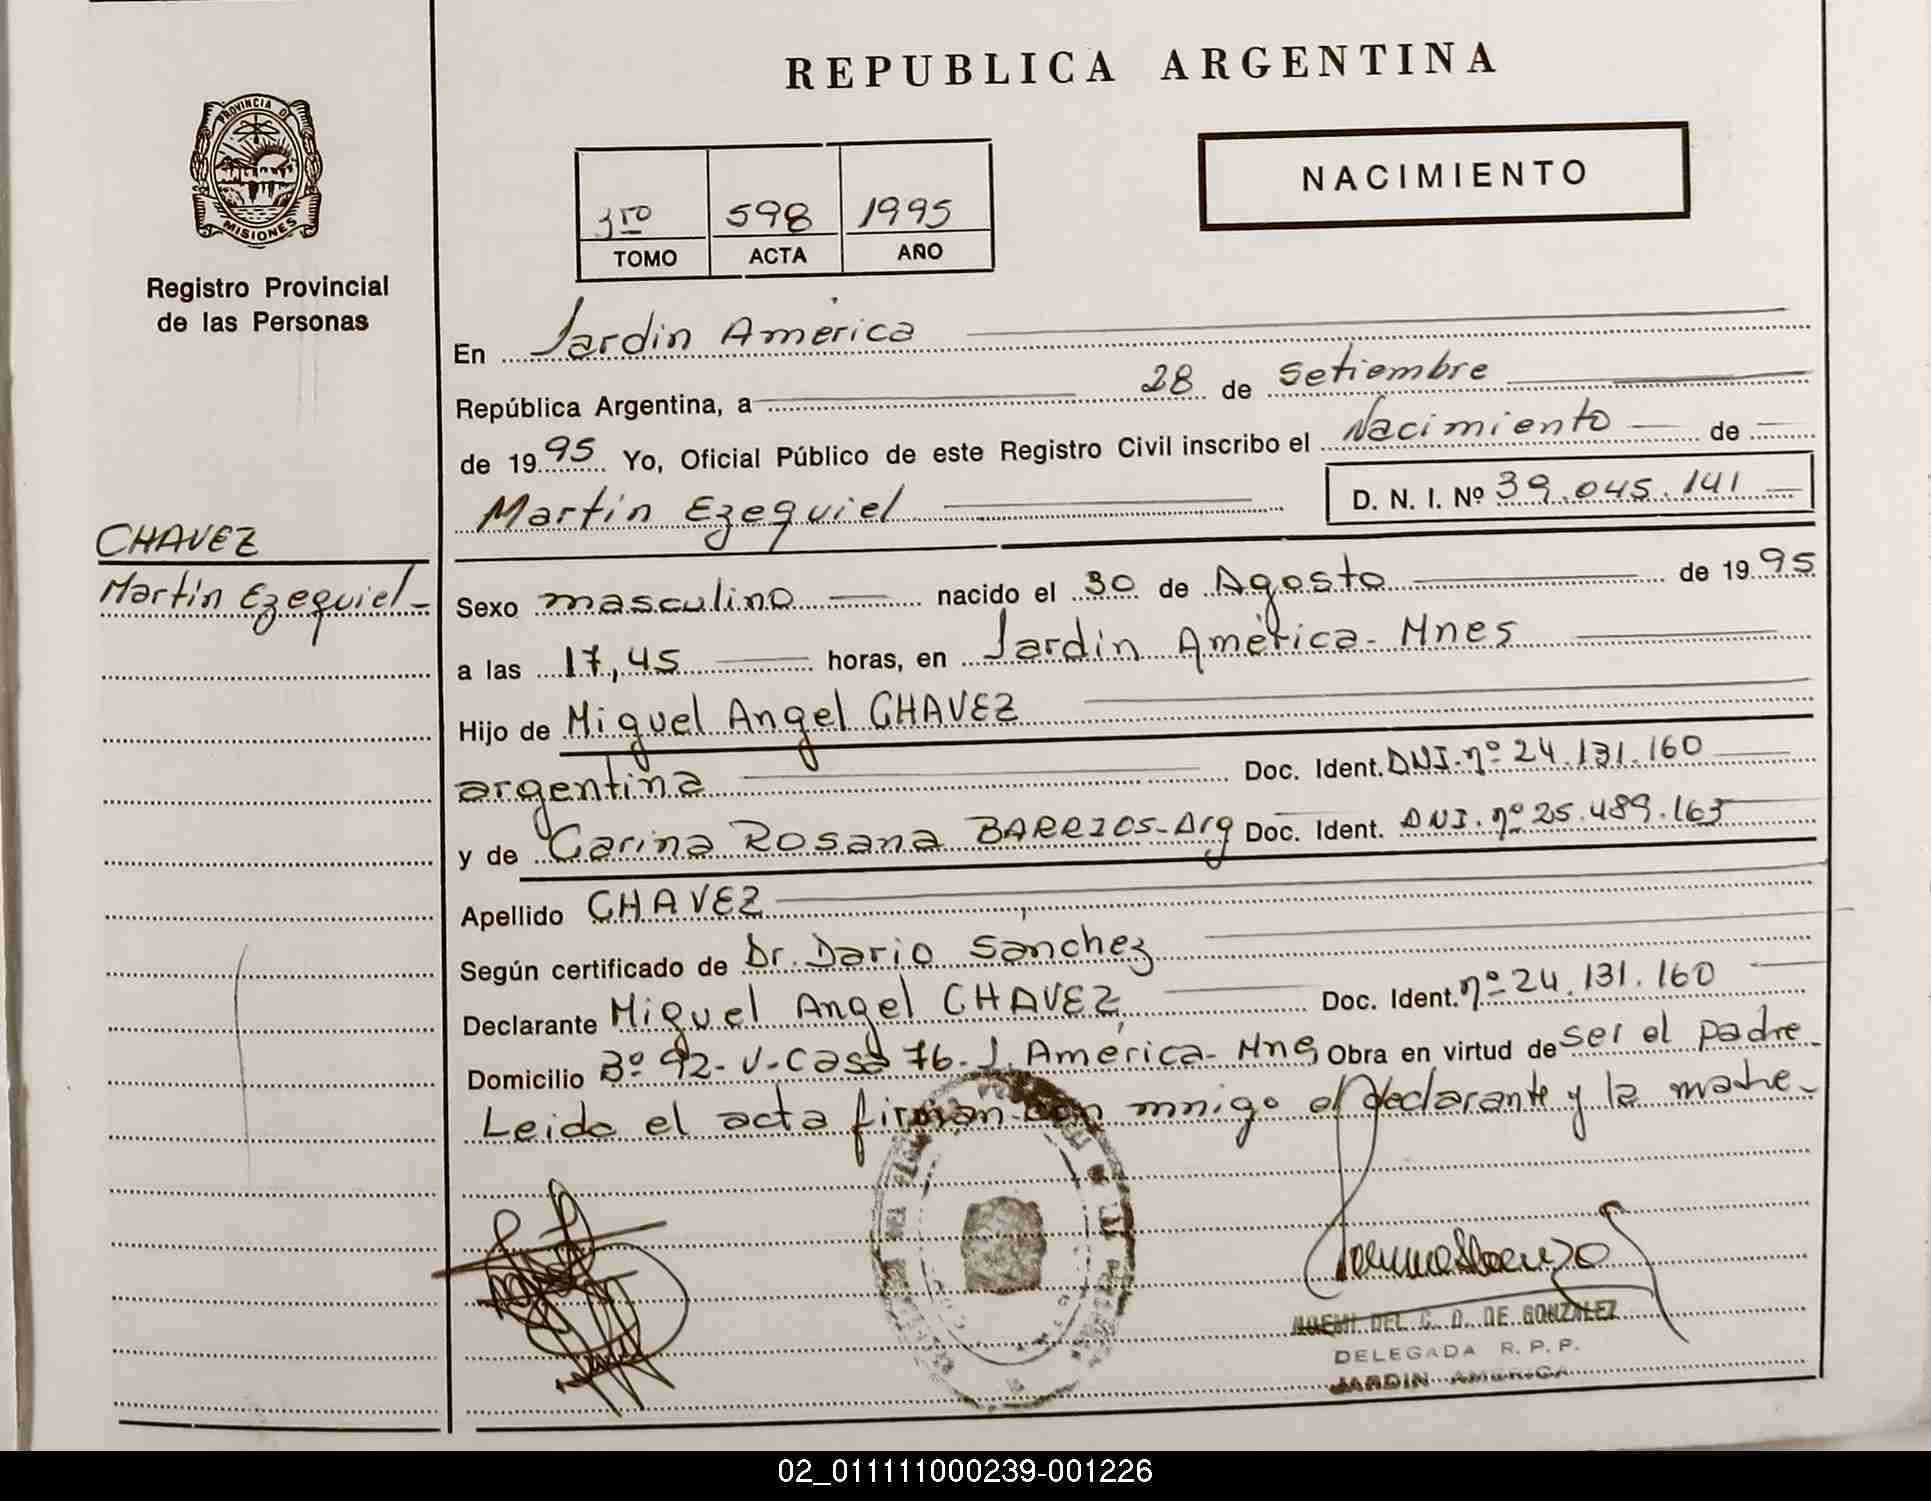 REPUBLICA ARGENTINA
PROVINCIA DE
MISIONES
Registro Provincial
de las Personas
NACIMIENTO
3ro 598 1995
TOMO ACTA AÑO
En Jardin América
República Argentina, a 28 de Setiembre
de 1995 Yo, Oficial Público de este Registro Civil inscribo el Nacimiento de
Martin Ezequiel D. N. I. Nº 39.045.141
CHAVEZ
Martin Ezequiel
Sexo masculino nacido el 30 de Agosto de 1995
a las 17,45 horas, en Jardin América- Mnes
Hijo de Miguel Angel CHAVEZ
argentina Doc. Ident. DNI. nº 24.131.160
y de Carina Rosana BARRIOS-Arg Doc. Ident. DNI. nº 25.489.163
Apellido CHAVEZ
Según certificado de Dr. Dario Sánchez
Declarante Miguel Angel CHAVEZ Doc. Ident. nº 24.131.160
Domicilio Bº 92-V-Casa 76-J. América- Mnes Obra en virtud de ser el padre
Leido el acta firman con mnigo el declarante y la madre-
NOEMI DEL C. D. DE GONZALEZ
DELEGADA R. P. P.
JARDIN AMERICA
02_011111000239-001226